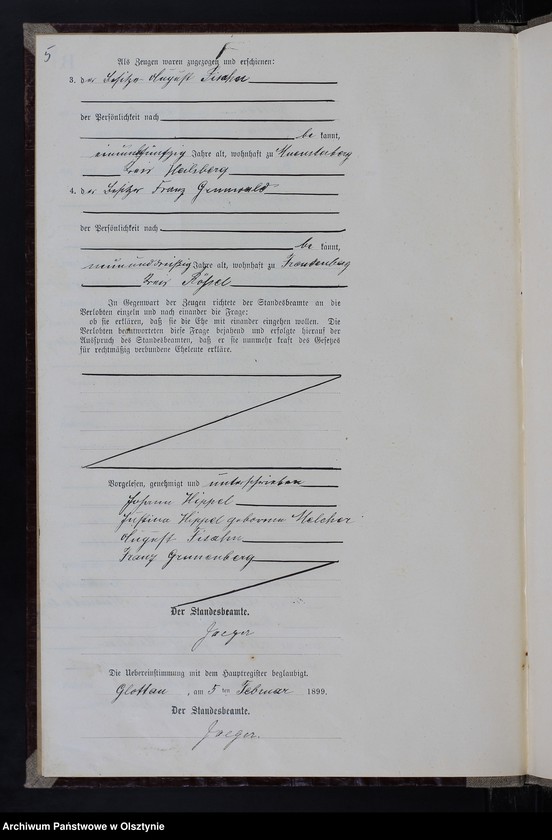 5
Als Zeugen waren zugezogen und erschienen:
3. der Besitzer August Fisahn
der Persönlichkeit nach
be kannt,
einundfünfzig Jahre alt, wohnhaft zu Muensterberg
Kreis Heilsberg
4. der Besitzer Franz
der Persönlichkeit nach
be kannt,
neununddreißig Jahre alt, wohnhaft zu
Kreis Rößel
In Gegenwart der Zeugen richtete der Standesbeamte an die
Verlobten einzeln und nach einander die Frage:
ob sie erklären, daß sie die Ehe mit einander eingehen wollen. Die
Verlobten beantworteten diese Frage bejahend und erfolgte hierauf der
Ausspruch des Standesbeamten, daß er sie nunmehr kraft des Gesetzes
für rechtmäßig verbundene Eheleute erkläre.
Vorgelesen, genehmigt und unterschrieben
Johann Hippel
Justina Hippel geborene Melcher
August Fisahn
Franz Grunenberg
Der Standesbeamte.
Jaeger
Die Uebereinstimmung mit dem Hauptregister beglaubigt.
Glottau, am 5 ten Februar 1899.
Der Standesbeamte.
Jaeger.
Archiwum Państwowe w Olsztynie